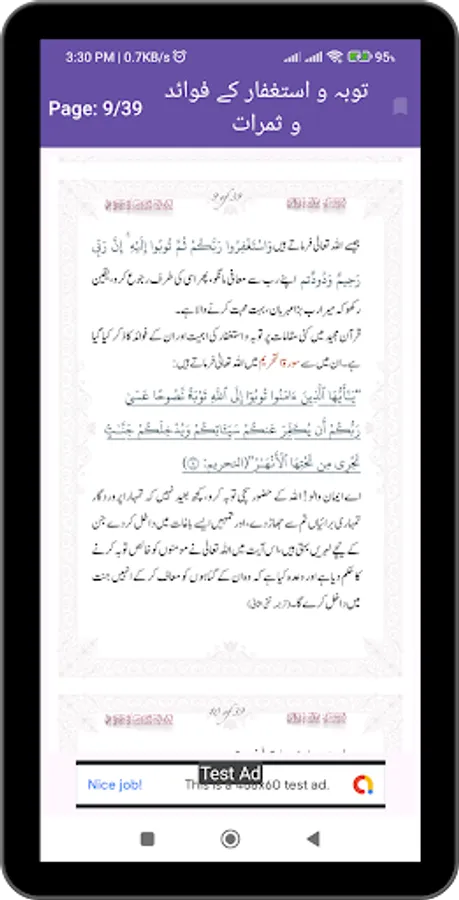 3:30 PM | 0.7KB/s
95%
توبہ و استغفار کے فوائد
و ثمرات
Page: 9/39
9 of 39
جیسے اللہ تعالیٰ فرماتے ہیں وَاسْتَغْفِرُوا رَبَّكُمْ ثُمَّ تُوبُوا إِلَيْهِ ۚ إِنَّ رَبِّي
رَحِيمٌ وَدُودٌ تم اپنے رب سے معافی مانگو، پھر اسی کی طرف رجوع کرو، یقین
رکھو کہ میرا رب بڑا مہربان، بہت محبت کرنے والا ہے۔
قرآن مجید میں کئی مقامات پر توبہ و استغفار کی اہمیت اور ان کے فوائد کا ذکر کیا گیا
ہے۔ ان میں سے سورۃ التحریم میں اللہ تعالیٰ فرماتے ہیں:
"يَـٰٓأَيُّهَا ٱلَّذِينَ ءَامَنُوا تُوبُوٓا إِلَى ٱللَّهِ تَوْبَةً نَّصُوحًا عَسَىٰ
رَبُّكُمْ أَن يُكَفِّرَ عَنكُمْ سَيِّـَٔاتِكُمْ وَيُدْخِلَكُمْ جَنَّـٰتٍ
تَجْرِى مِن تَحْتِهَا ٱلْأَنْهَـٰرُ" (التحریم:
اے ایمان والو! اللہ کے حضور سچی توبہ کرو، کچھ بعید نہیں کہ تمہارا پروردگار
تمہاری برائیاں تم سے جھاڑ دے، اور تمہیں ایسے باغات میں داخل کر دے جن
کے نیچے نہریں بہتی ہیں، اس آیت میں اللہ تعالیٰ نے مومنوں کو خالص توبہ کرنے
کا حکم دیا ہے اور وعدہ کیا ہے کہ وہ ان کے گناہوں کو معاف کر کے انہیں جنت
میں داخل کرے گا۔
10 of 39
Test Ad
Nice job!
This is a 468x60 test ad.